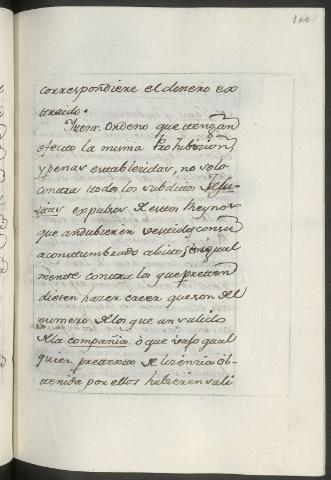 correspondiere el dinero ex
traido.
Ittem. Ordeno que tengan
efecto la misma Prohibision
y penas establesidas, no solo
contra todos los subditos Jesu-
itas expulsos de estos Reynos
que andubieren vestidos con su
acostumbrado abito, sino igual
mente contra los que preten
diesen hazer creer que son del
numero de los que an salido
de la compañia ò que vajo qual
quier prettexto de lizenzia ob-
tenida por ellos hubieren sali